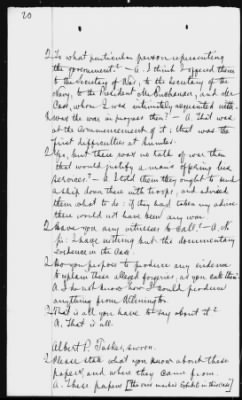 20
Q. To what particular person representing
the government? - A. I think I offered them
to the Secretary of War, to the Secretary of the
Navy, to the President Mr. Buchanan, and Mr
Cass, whom I was intimately acquainted with.
Q. Was the war in progress then? - A. That was
at the commencement of it; that was the
first difficulties at Sumter.
Q. Yes, but there was no talk of war then
that would justify a man's offering his
services? - A. I told them they ought to send
a ship down there with troops, and advised
them what to do; if they had taken my advice
there would not have been any war.
Q. Have you any witnesses to call? - A. No
sir. I have nothing but the documentary
evidence in the case.
Q. Do you propose to produce any evidence
to explain these alleged forgeries, as you call them?
A. I do not know how I could produce
anything from Wilmington.
Q. That is all you have to say about it?
A. That is all.
Albert P. Tasker, sworn.
Q. Please state what you know about these
papers, and where they came from.
A. These papers [the ones marked Exhibit in this case]